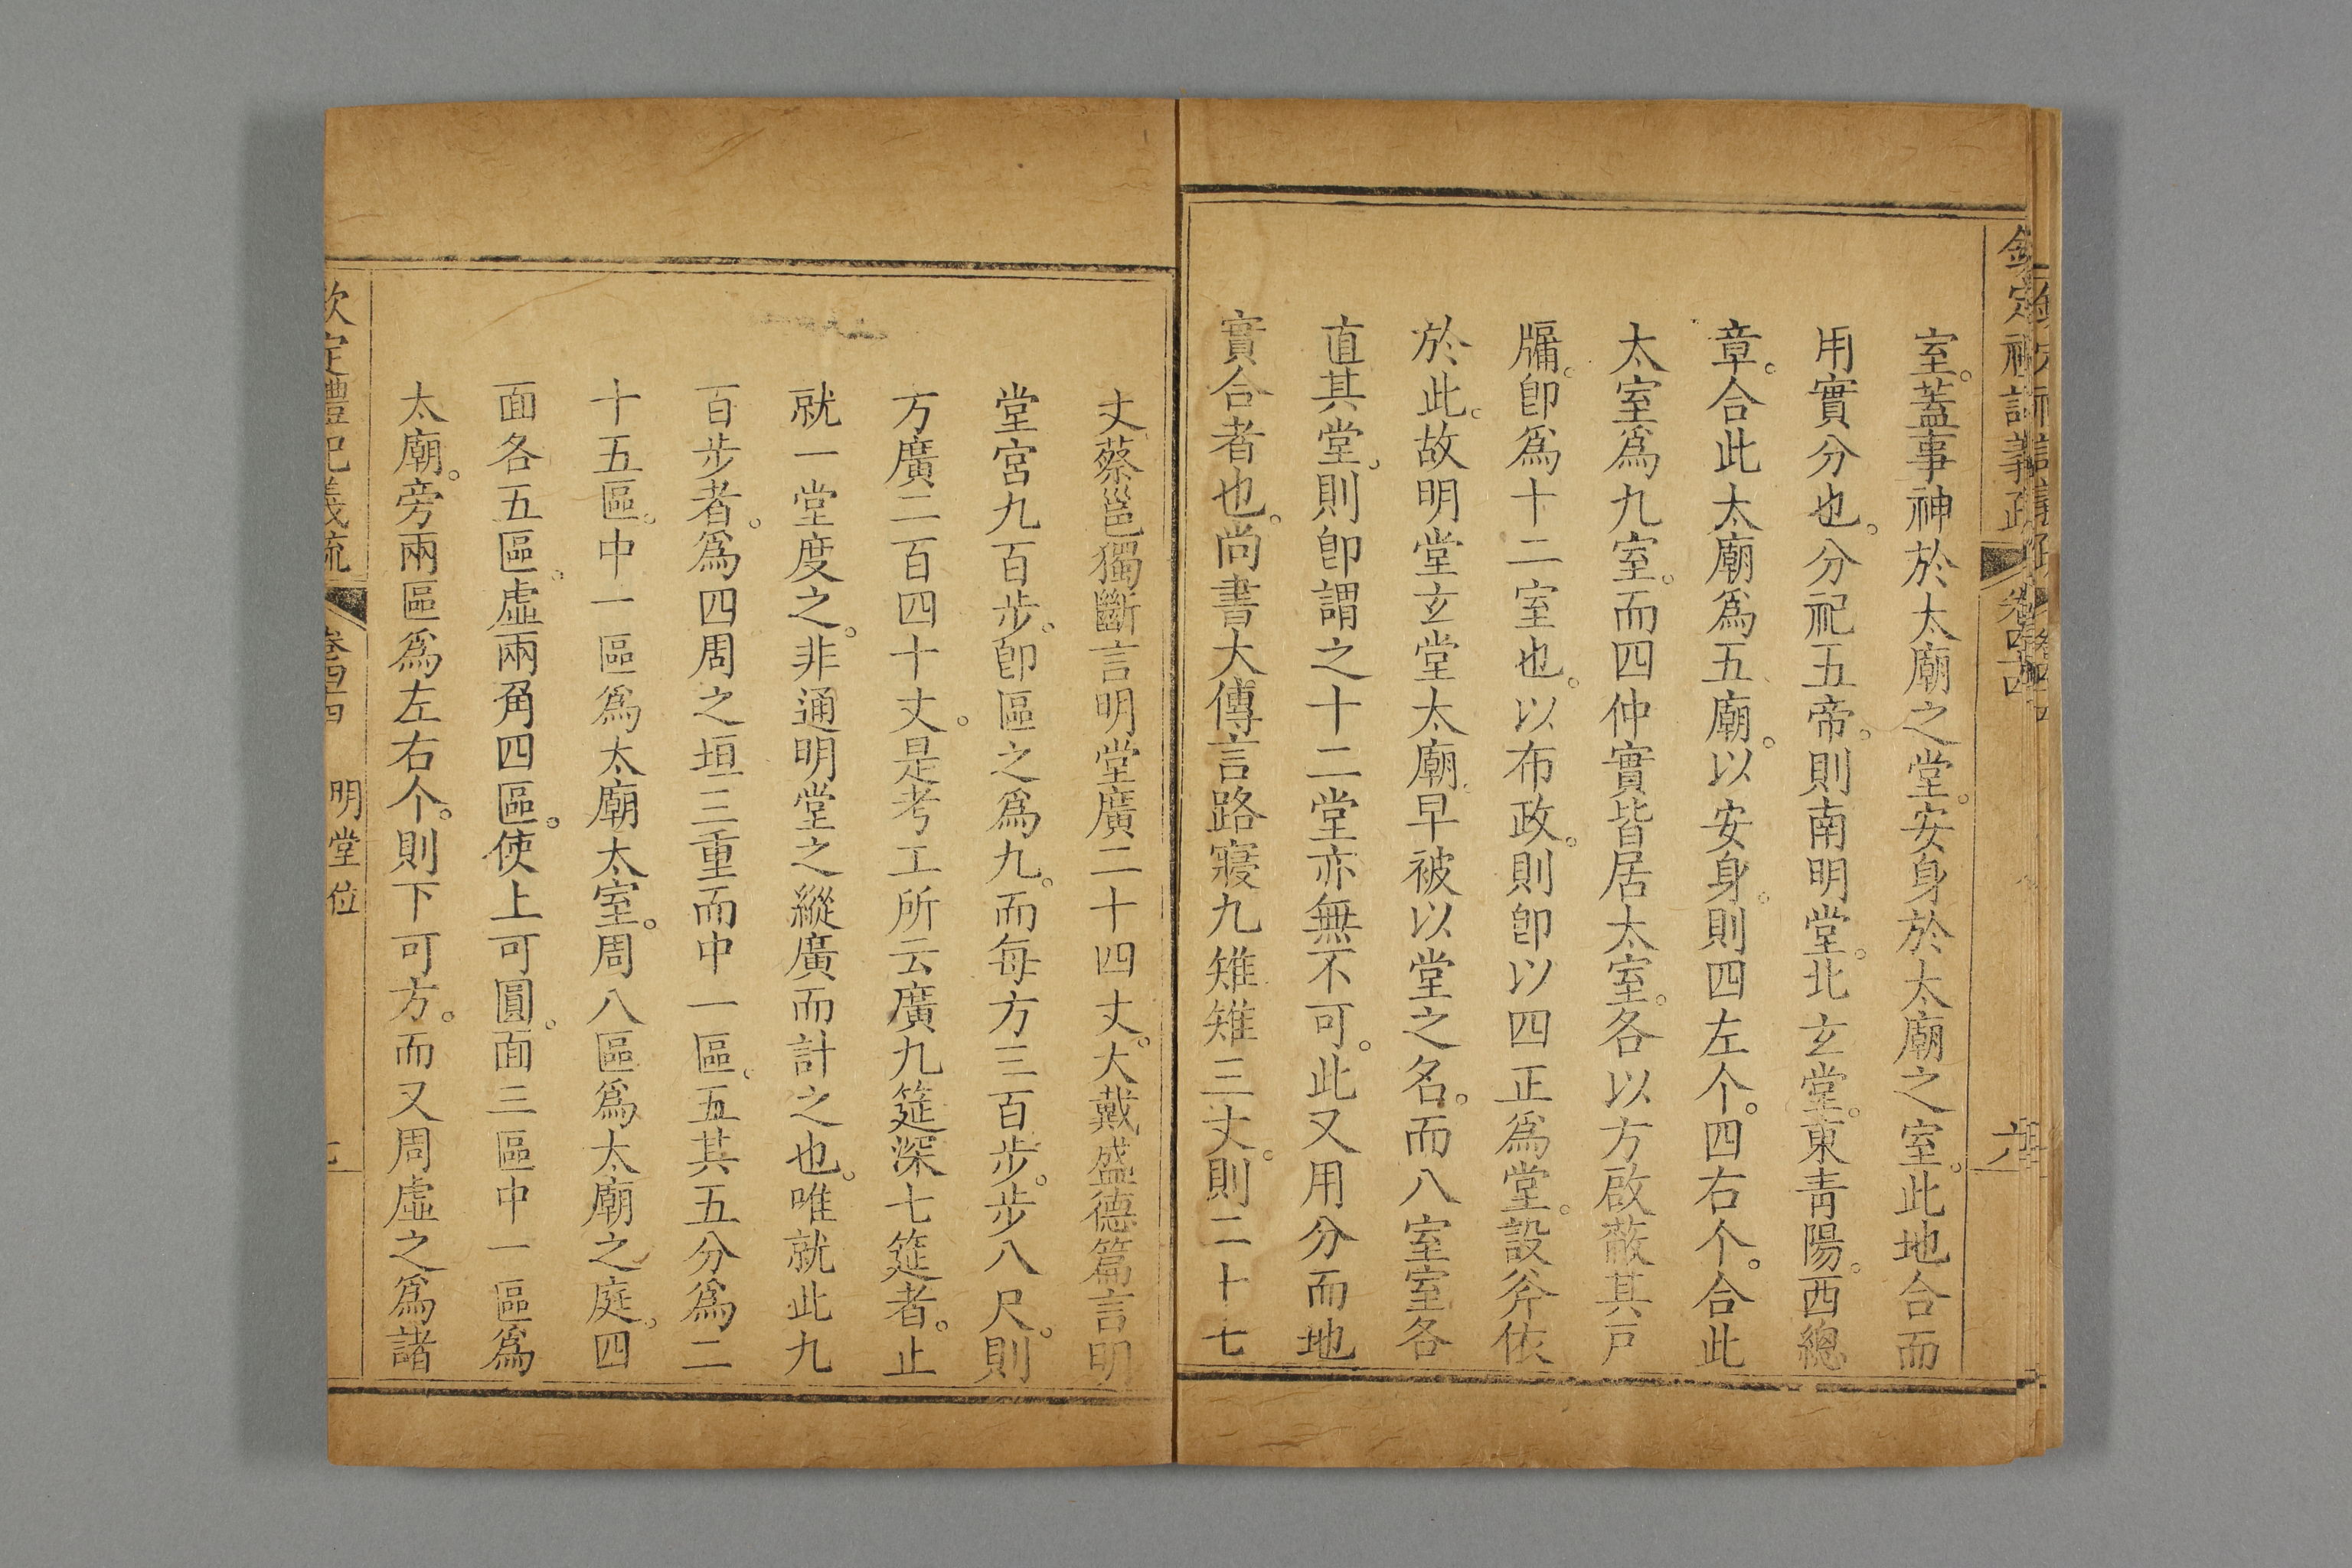 欽定禮記義疏 卷四十四 六
室。蓋事神於太廟之堂。安身於太廟之室。此地合而
用實分也。分祀五帝。則南明堂。北玄堂。東靑陽。西總
章。合此太廟爲五廟。以安身。則四左个。四右个。合此
太室爲九室。而四仲實皆居太室。各以方啟蔽其戸
牖。卽爲十二室也。以布政。則卽以四正爲堂。設斧依
於此。故明堂玄堂太廟。早被以堂之名。而八室室各
直其堂。則卽謂之十二堂亦無不可。此又用分而地
實合者也。尚書大傳言路寢九雉雉三丈。則二十七
丈蔡邕獨斷言明堂廣二十四丈。大戴盛德篇言明
堂宮九百步。卽區之爲九。而每方三百步。步八尺。則
方廣二百四十丈。是考工所云廣九筵深七筵者。止
就一堂度之。非通明堂之縱廣而計之也。唯就此九
百步者。爲四周之垣三重而中一區。五其五分爲二
十五區。中一區爲太廟太室。周八區爲太廟之庭。四
面各五區。虛兩角四區。使上可圓。面三區中一區爲
太廟。旁兩區爲左右个。則下可方。而又周虛之爲諸
欽定禮記義疏 卷四十四 明堂位 七